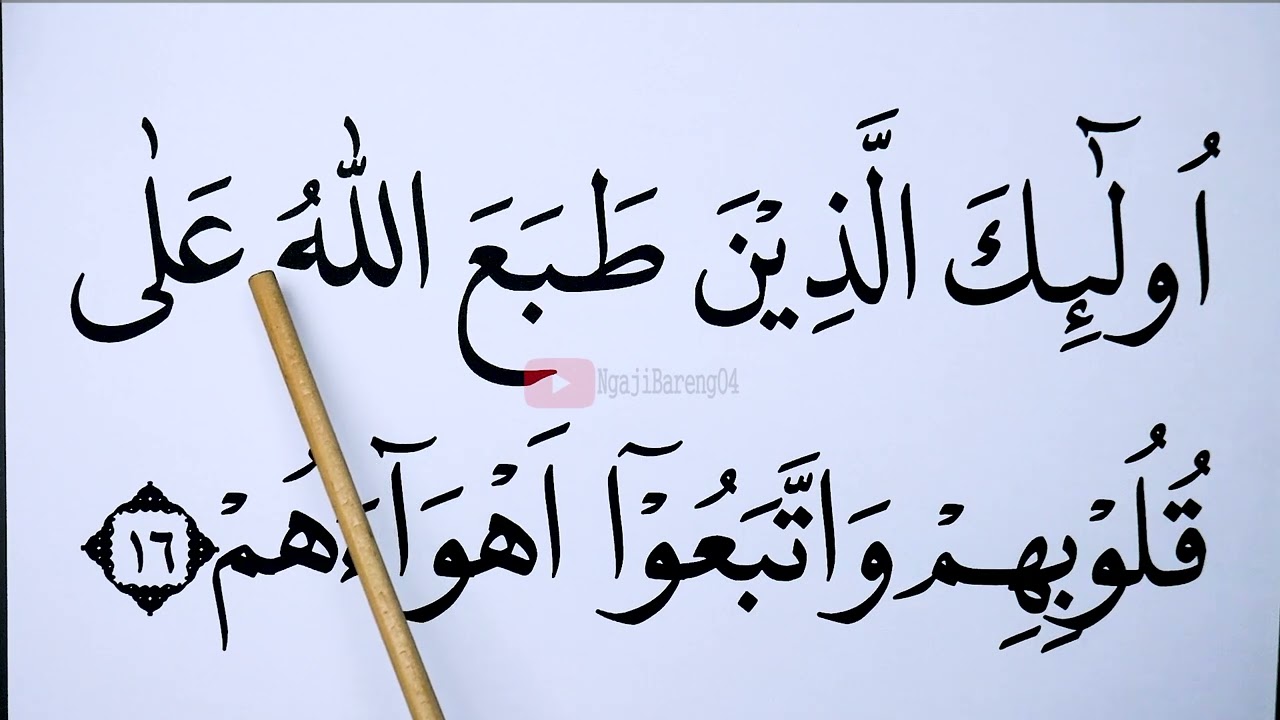 اُولٰۤىِٕكَ الَّذِيْنَ طَبَعَ اللّٰهُ عَلٰى
NgajiBareng04
قُلُوْبِهِمْ وَاتَّبَعُوْٓا اَهْوَاۤءَهُمْ ١٦